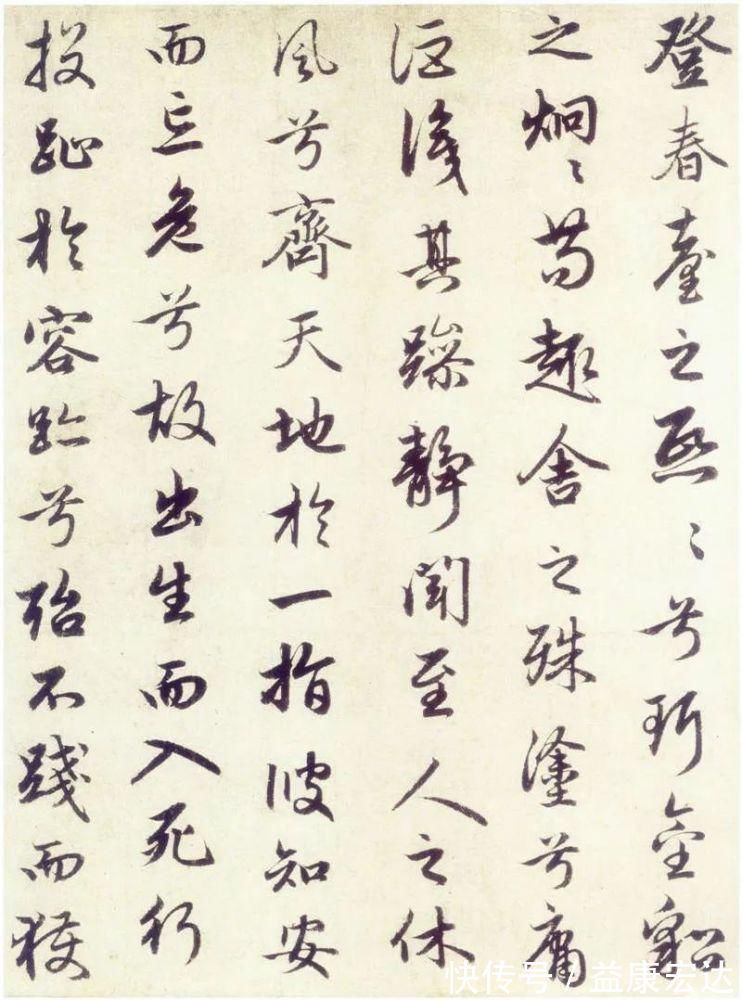 登春臺之熙〻兮珥金貂
之炯〻苟趣舍之殊塗兮庸
詎識其躁靜聞至人之休
風兮齊天地於一指彼知安
而忘危兮故出生而入死行
投趾於容跡兮殆不踐而獲
快传号 / 益康宏达